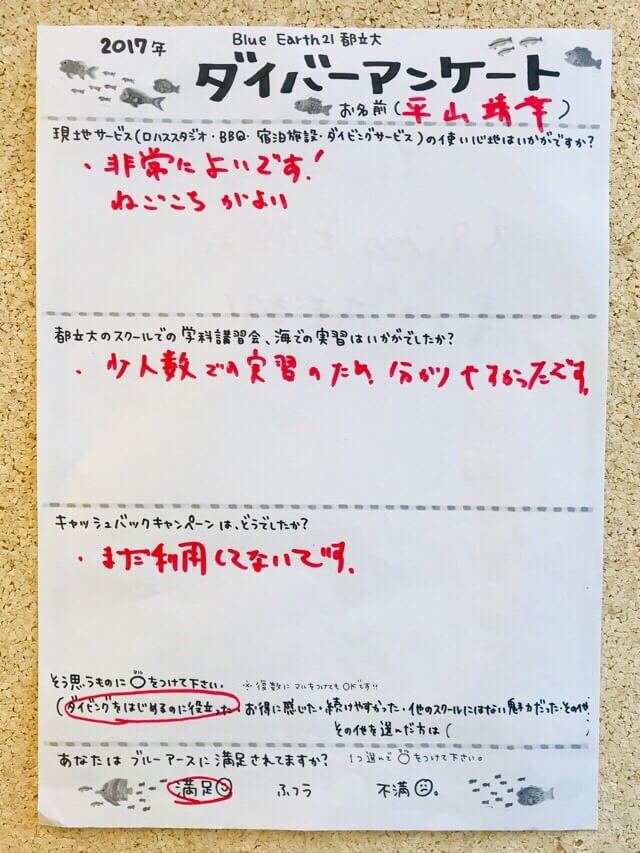 2017年 Blue Earth21 都立大
ダイバーアンケート
お名前(平山 靖幸)
現地サービス(ロハススタジオ・BBQ・宿泊施設・ダイビングサービス)の使い心地はいかがですか?
・非常によいです!
ねごこちがよい
都立大のスクールでの学科講習会、海での実習はいかがでしたか?
・少人数での実習のため、分かりやすかったです。
キャッシュバックキャンペーンは、どうでしたか?
・まだ利用してないです。
そう思うものに○をつけて下さい。 ※複数にマルをつけてもOKです!!
(ダイビングをはじめるのに役立った・お得に感じた・続けやすかった・他のスクールにはない魅力だった・その他
その他を選んだ方は( )
あなたはブルーアースに満足されてますか? 1つ選んで○をつけて下さい。
満足 ふつう 不満。